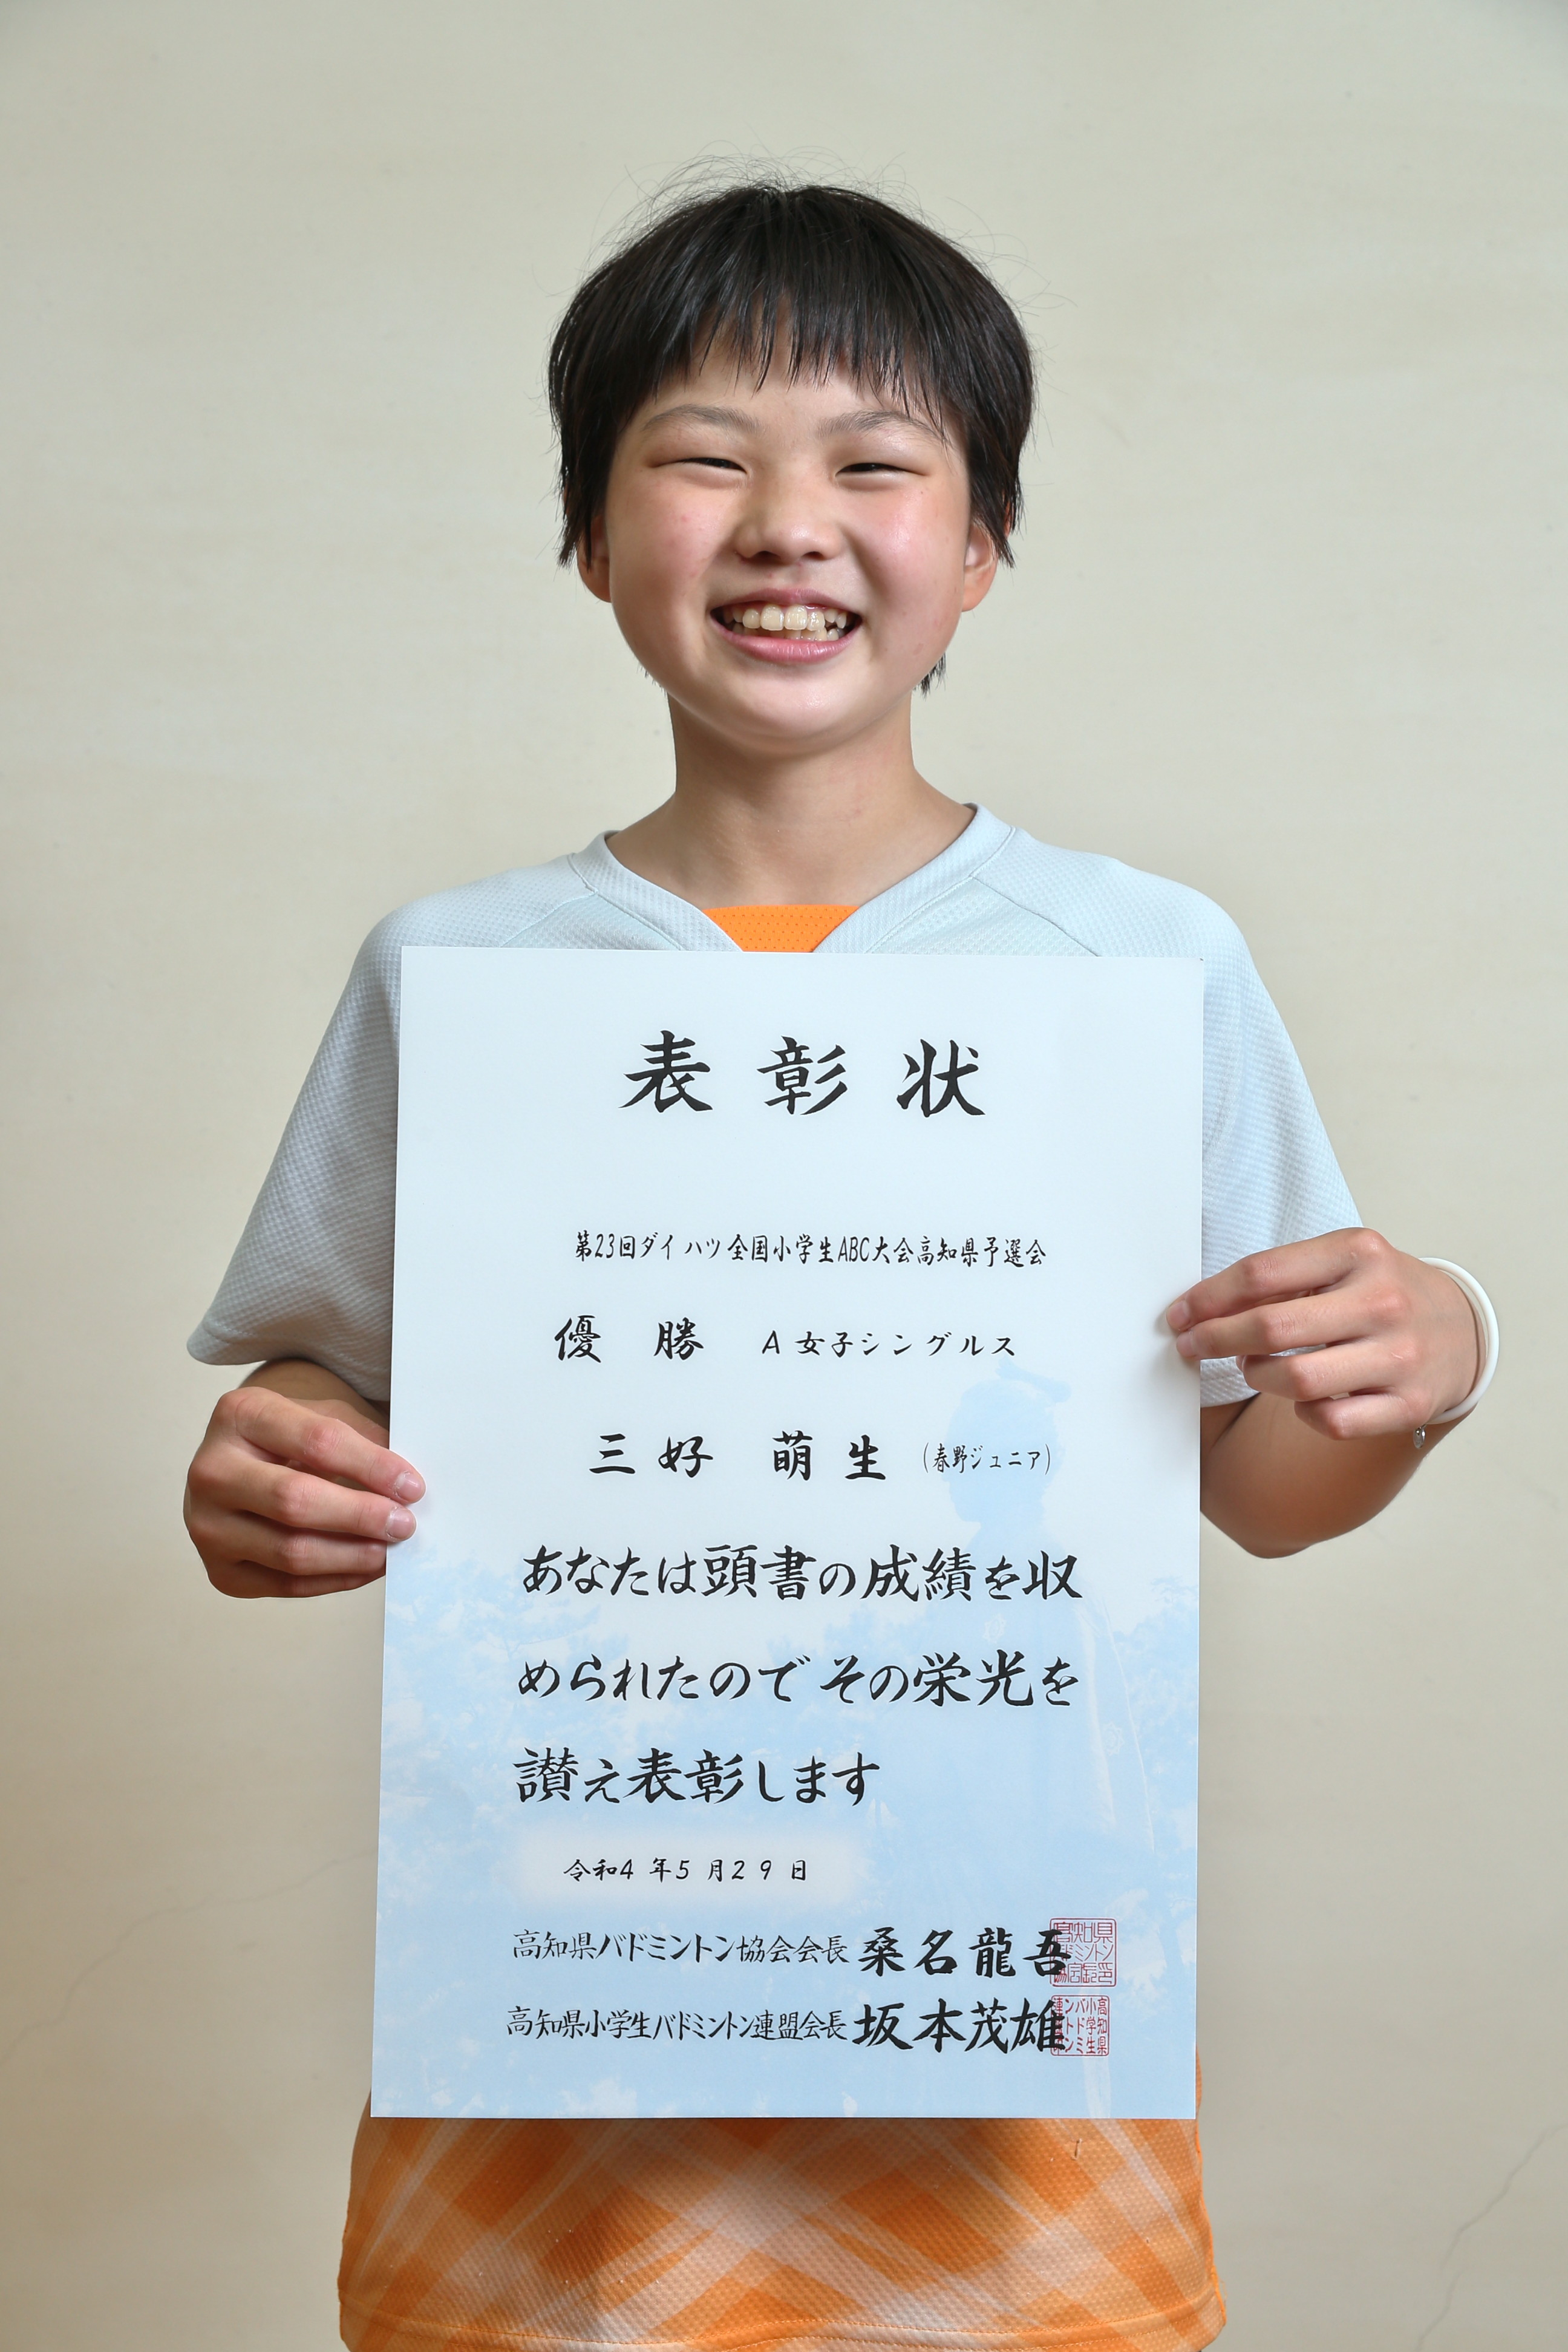 表彰状
第23回ダイハツ全国小学生ABC大会高知県予選会
優勝 A女子シングルス
三好 萌生 (春野ジュニア)
あなたは頭書の成績を収
められたのでその栄光を
讃え表彰します
令和4年5月29日
高知県バドミントン協会会長 桑名龍吾
高知県小学生バドミントン連盟会長 坂本茂雄